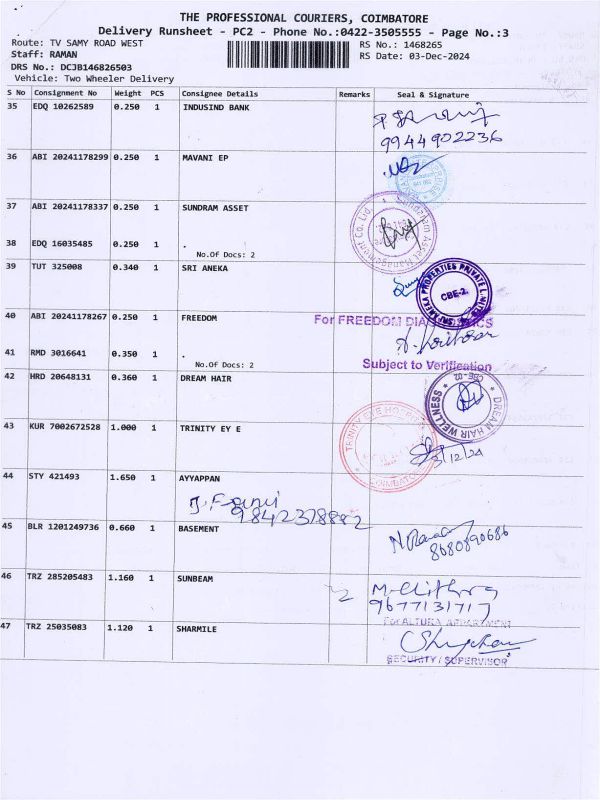 THE PROFESSIONAL COURIERS, COIMBATORE
Delivery Runsheet - PC2 - Phone No.:0422-3505555 - Page No.:3
Route: TV SAMY ROAD WEST RS No.: 1468265
Staff: RAMAN RS Date: 03-Dec-2024
DRS No.: DCJB146826503
Vehicle: Two Wheeler Delivery
S No Consignment No Weight PCS Consignee Details Remarks Seal & Signature
35 EDQ 10262589 0.250 1 INDUSIND BANK
9944902236
36 ABI 20241178299 0.250 1 MAVANI EP
37 ABI 20241178337 0.250 1 SUNDRAM ASSET
Sundaram Asset Management Co. Ltd.
38 EDQ 16035485 0.250 1 .
No.Of Docs: 2
39 TUT 325008 0.340 1 SRI ANEKA
SRI ANEKA PROPERTIES PRIVATE LIMITED
CBE-2.
40 ABI 20241178267 0.250 1 FREEDOM
For FREEDOM DIAGNOSTICS
41 RMD 3016641 0.350 1 .
No.Of Docs: 2
Subject to Verification
42 HRD 20648131 0.360 1 DREAM HAIR
DREAM HAIR WELLNESS * CBE-02 *
43 KUR 7002672528 1.000 1 TRINITY EY E
TRINITY EYE HOSPITAL
COIMBATORE
3/12/24
44 STY 421493 1.650 1 AYYAPPAN
9842378882
45 BLR 1201249736 0.660 1 BASEMENT
8680890686
46 TRZ 285205483 1.160 1 SUNBEAM
9677131717
For ALTURA APPARTMENT
47 TRZ 25035083 1.120 1 SHARMILE
SECURITY / SUPERVISOR